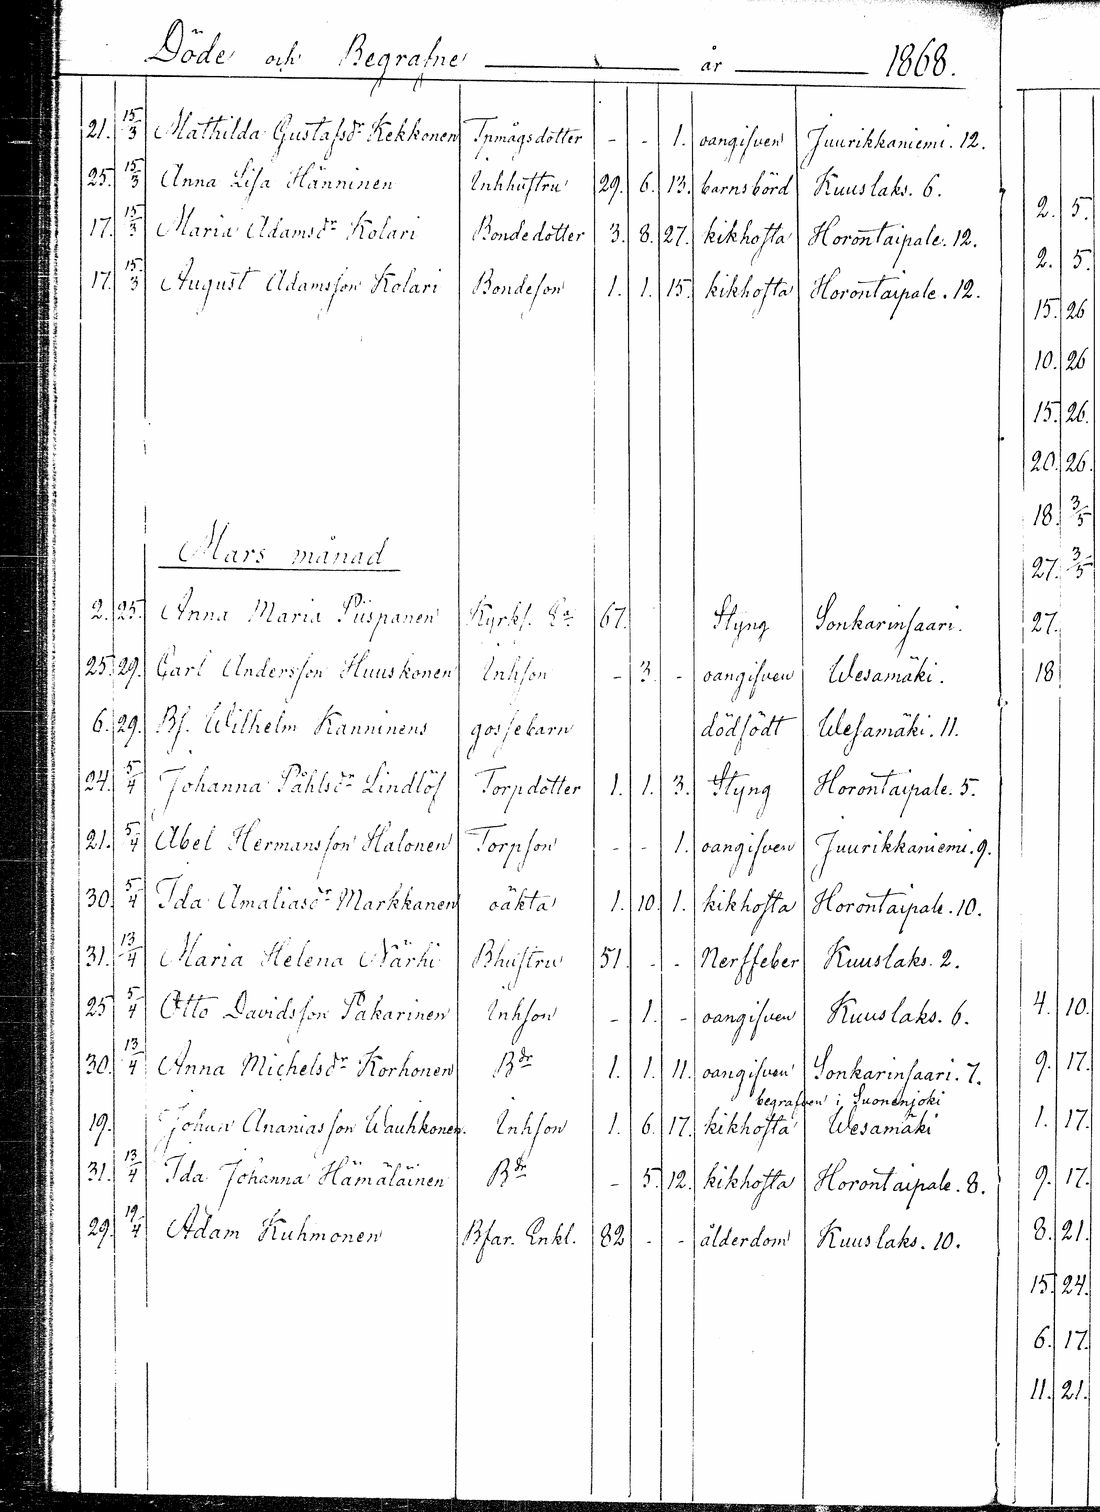 Döde och Begrafne år 1868.
21. 15/3 Mathilda Gustafsdr Kekkonen Tpmågsdotter - - 1. oangifven Juurikkaniemi. 12.
25. 15/3 Anna Lisa Hänninen Inhhustru 29. 6. 13. barnsbörd Kuuslaks. 6.
17. 15/3 Maria Adamsdr Kolari Bondedotter 3. 8. 27. kikhosta Horontaipale. 12.
17. 15/3 August Adamsson Kolari Bondeson 1. 1. 15. kikhosta Horontaipale. 12.
Mars månad
2. 25. Anna Maria Piispanen Kyrks. 67. Styng Sonkarinsaari.
25. 29. Carl Andersson Huuskonen Inhson - 3. - oangifven Wesamäki.
6. 29. Bf. Wilhelm Kanninens gossebarn dödfödt Wesamäki. 11.
24. 5/4 Johanna Påhlsdr Lindlöf Torpdotter 1. 1. 3. Styng Horontaipale. 5.
21. 5/4 Abel Hermansson Halonen Torpson - - 1. oangifven Juurikkaniemi. 9.
30. 5/4 Ida Amaliasdr Markkanen oäkta 1. 10. 1. kikhosta Horontaipale. 10.
31. 13/4 Maria Helena Närhi Bhustru 51. - - Nerffeber Kuuslaks. 2.
25 5/4 Otto Davidsson Pakarinen Inhson - 1. - oangifven Kuuslaks. 6.
30. 13/4 Anna Michelsdr Korhonen Bdr 1. 1. 11. oangifven Sonkarinsaari. 7.
begrafven i Suonenjoki
19. Johan Ananiasson Wauhkonen. Inhson 1. 6. 17. kikhosta Wesamäki
31. 13/4 Ida Johanna Hämäläinen Bdr - 5. 12. kikhosta Horontaipale. 8.
29. 19/4 Adam Kuhmonen Bfar. Enkl. 82 - - ålderdom Kuuslaks. 10.
2. 5.
2. 5.
15. 26
10. 26
15. 26.
20. 26.
18. 3/5
27. 3/5
27.
18
4. 10.
9. 17.
1. 17.
9. 17.
8. 21.
15. 24.
6. 17.
11. 21.